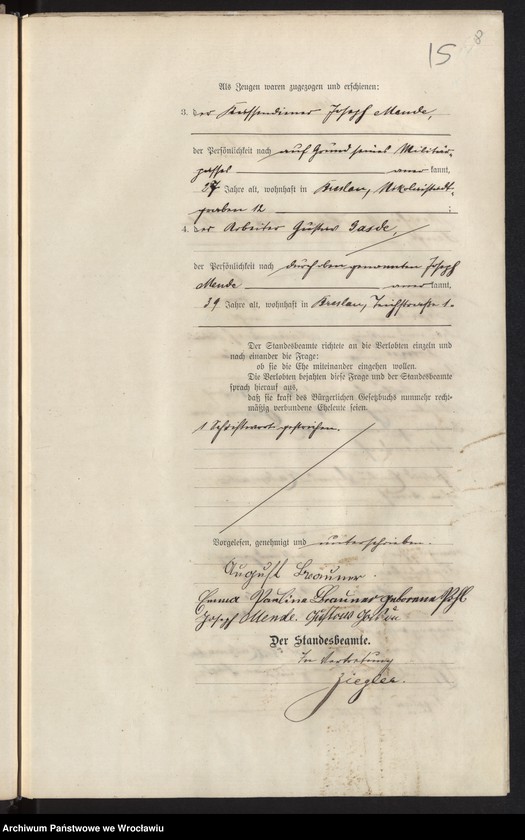 15
8
Als Zeugen waren zugezogen und erschienen:
3. der Kassendiener Joseph Mende,
der Persönlichkeit nach auf Grund seines Militär-
passes anerkannt,
27 Jahre alt, wohnhaft in Breslau, Nikolaistadt-
graben 12;
4. der Arbeiter Gustav
der Persönlichkeit nach durch den genannten Joseph
Mende anerkannt,
39 Jahre alt, wohnhaft in Breslau, Teichstraße 1.
Der Standesbeamte richtete an die Verlobten einzeln und
nach einander die Frage:
ob sie die Ehe miteinander eingehen wollen.
Die Verlobten bejahten diese Frage und der Standesbeamte
sprach hierauf aus,
daß sie kraft des Bürgerlichen Gesetzbuchs nunmehr recht-
mäßig verbundene Eheleute seien.
1 Schriftwort gestrichen.
Vorgelesen, genehmigt und unterschrieben.
August Brauner.
Emma Pauline Brauner geborene
Joseph Mende. Gustav
Der Standesbeamte.
In Vertretung
Ziegler.
Archiwum Państwowe we Wrocławiu